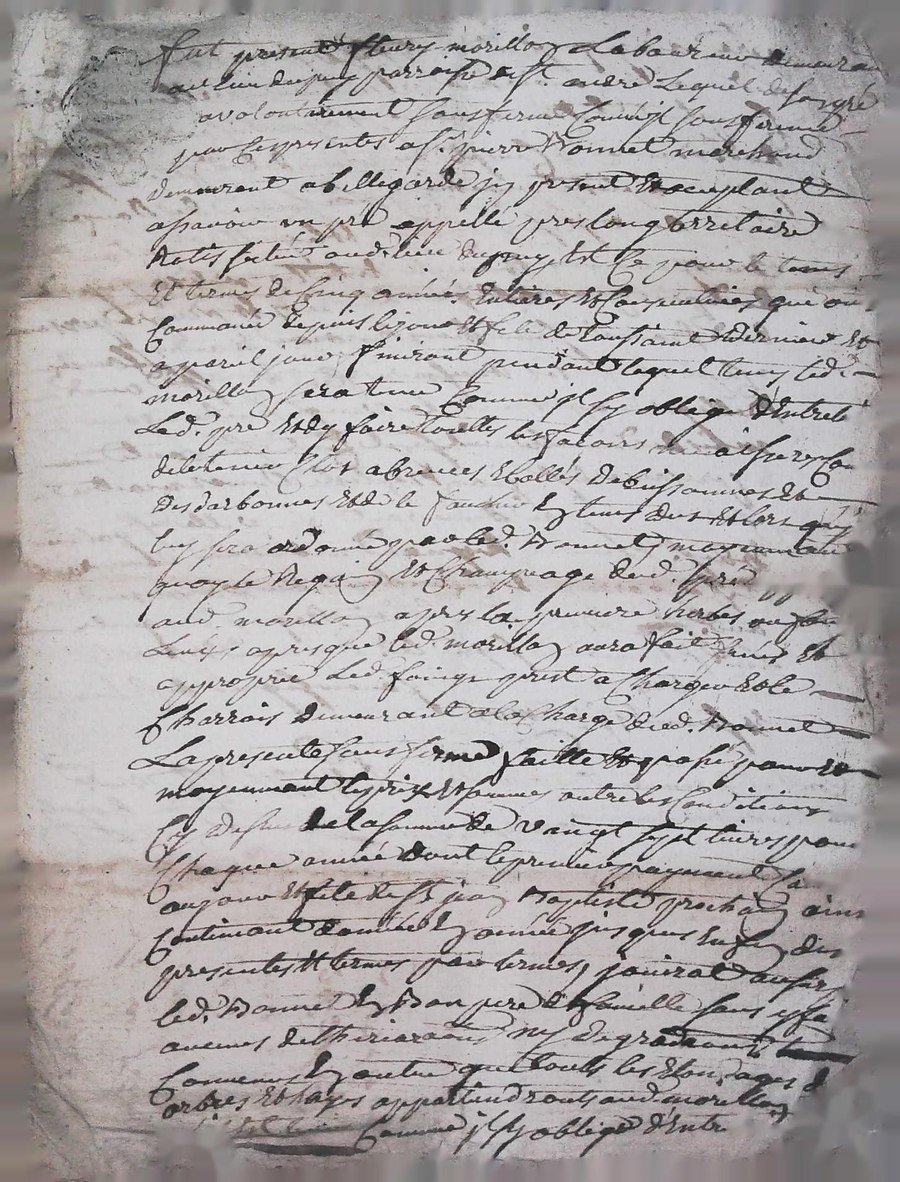 fut present fleury morillon Laboureur demeurant
au lieu du puy parroisse de st. andré Lequel de son gré
a volontairement sousfermé comme jl sousferme
par ces presentes a sr. pierre Bonnet marchand
demeurant a bellegarde jcy present et acceptant
a sçavoir un pré appellé pré long territoire
situé audit. lieu du puy Et Ce pour le tems
Et termes de Cinq années Entieres Et Consecutives qui ont
Commencé depuis le jour Et fete de toussaint dernier Et
a pareil jour finiront pendant lequel tems led.
morillon sera tenu comme jl sy oblige d'Entretenir
Led. pré Et dy faire touttes les facons necessaires
de le tenir Clos abreuvés
des darbonnes Et de le faucher En tems du Et lors quil
luy sera ordonné par led. Bonnet moyennant
quoy le Regain Et Champeage dud. pré
aud morillon apres la premiere herbe
apres que led. morillon aura fait
approprié Led. foin prest a Charger Et le
Charrois demeurant a la Charge dud. Bonnet
La presente sousferme faitte Et passé pour Et
moyennant le prix Et sommes outre les Conditions
Cy dessus de la somme de vingt sept livres pour
Chaque année dont le premier payement
au jour Et fete de St jean Baptiste prochain ainsi
Continuant d'année En année jusques En fin des
presentes Et termes par termes, jouira
led. Bonnet En Bon pere de famille sans y faire
aucunes deteriorations ny degradations
Convenu En outre que touts les Elagages d
arbres Et hayes appartiendront aud morillon
Comme jl sy oblige d'Entre